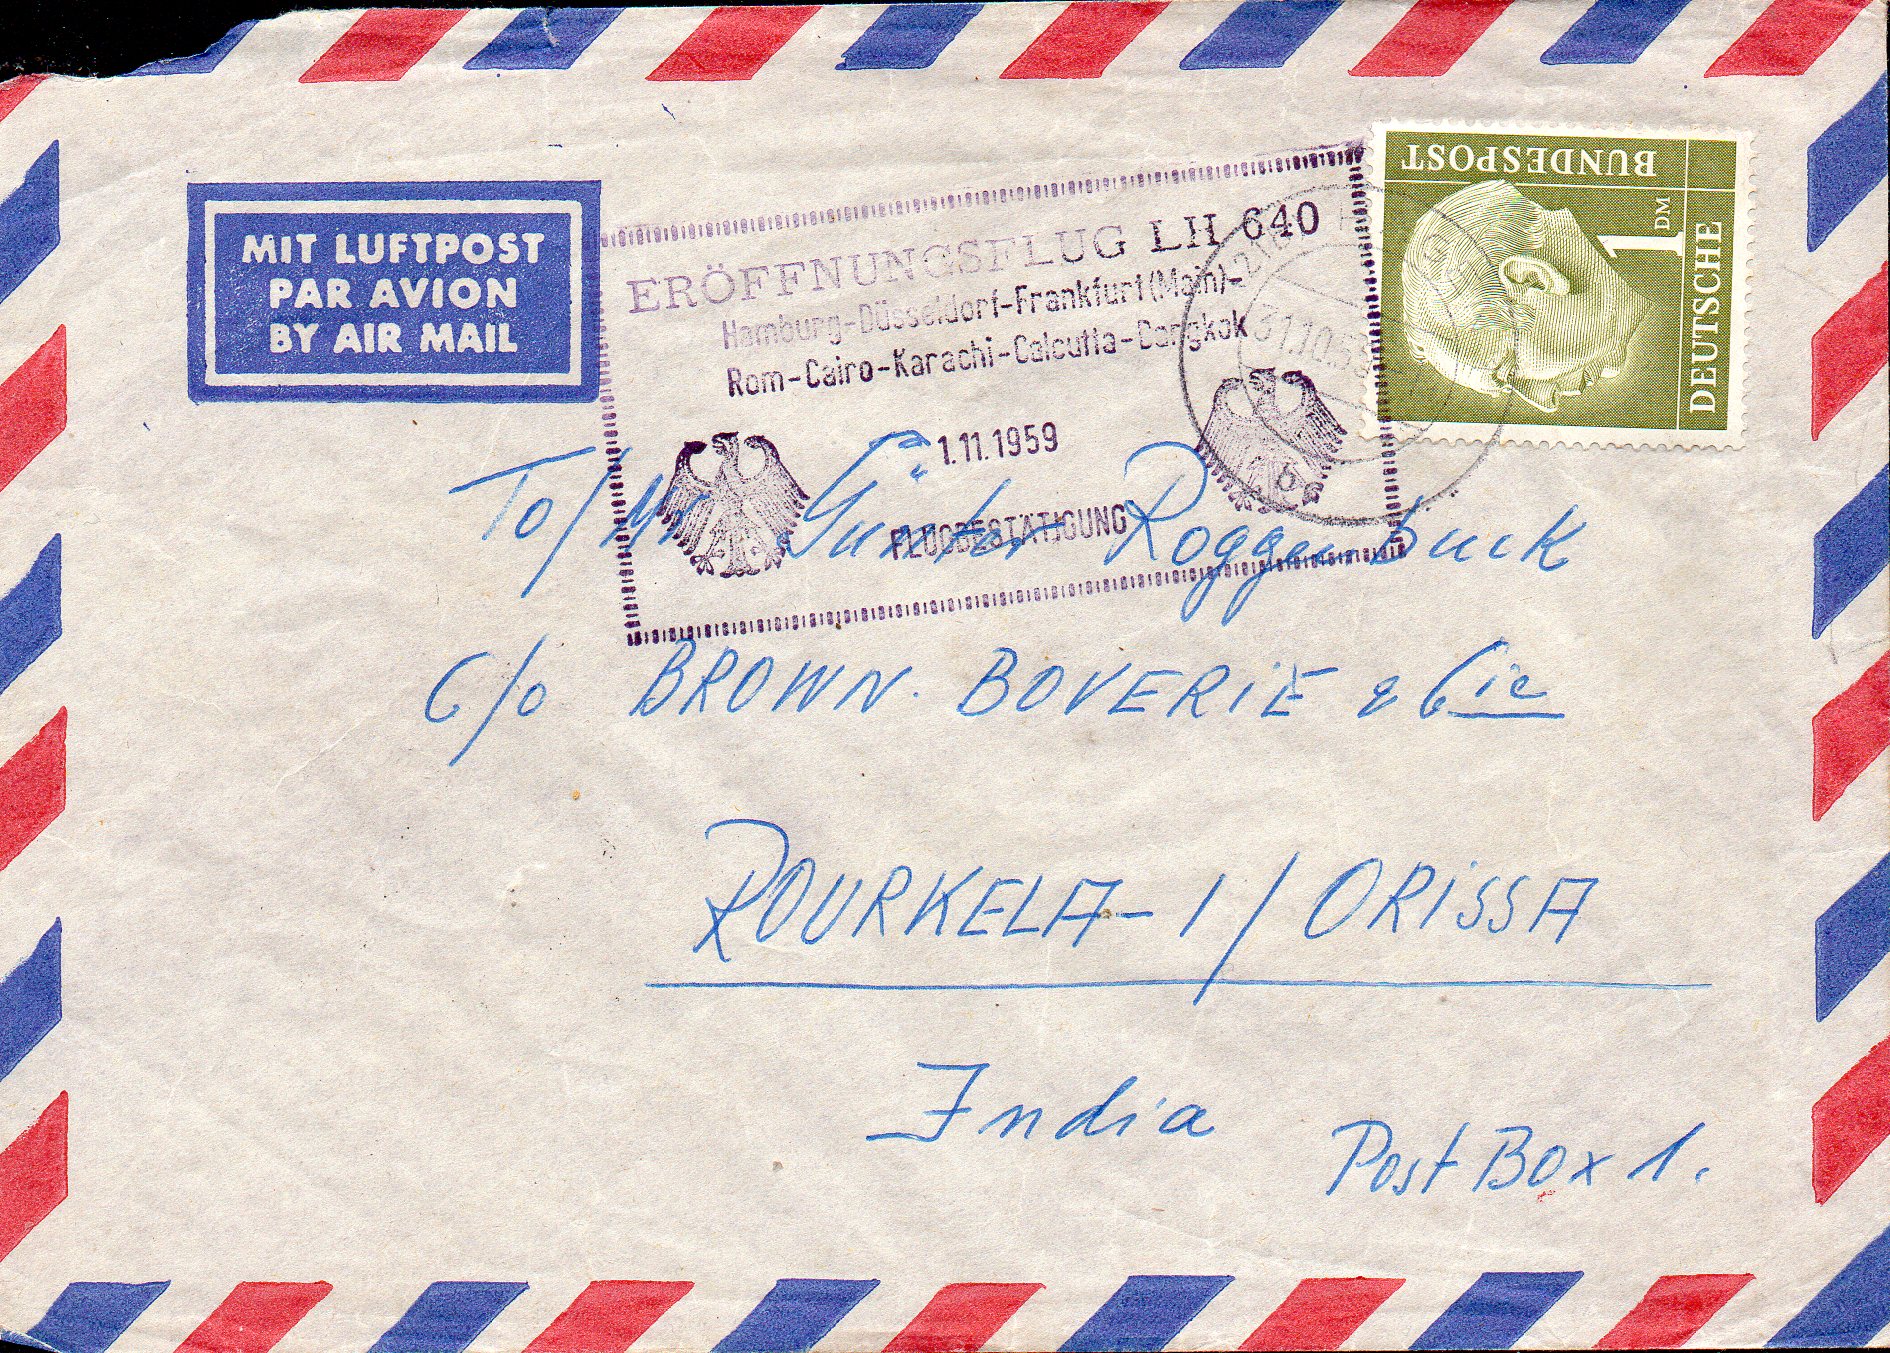 MIT LUFTPOST
PAR AVION
BY AIR MAIL
ERÖFFNUNGSFLUG LH 640
Hamburg-Düsseldorf-Frankfurt(Main)-
Rom-Cairo-Karachi-Calcutta-Bangkok
1.11.1959
FLUGBESTÄTIGUNG
31.10.59
b
DEUTSCHE
BUNDESPOST
1 DM
To/Mr Günter Roggenbuck
C/o BROWN. BOVERIE & Cie
ROURKELA-1/ORISSA
India
Post Box 1.